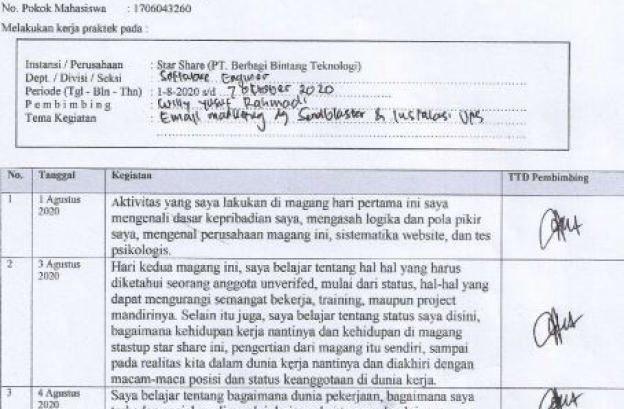 No. Pokok Mahasiswa : 1706043260
Melakukan kerja praktek pada :
Instansi / Perusahaan : Star Share (PT. Berbagi Bintang Teknologi)
Dept. / Divisi / Seksi : Software Enginer
Periode (Tgl - Bln - Thn) : 1-8-2020 s/d 7 Oktober 2020
Pembimbing : Willy Yusuf Rahmadi
Tema Kegiatan : Email marketing dg Sendblaster & Instalasi VPS
No. Tanggal Kegiatan TTD Pembimbing
1 1 Agustus Aktivitas yang saya lakukan di magang hari pertama ini saya
2020 mengenali dasar kepribadian saya, mengasah logika dan pola pikir
saya, mengenal perusahaan magang ini, sistematika website, dan tes
psikologis.
2 3 Agustus Hari kedua magang ini, saya belajar tentang hal hal yang harus
2020 diketahui seorang anggota unverifed, mulai dari status, hal-hal yang
dapat mengurangi semangat bekerja, training, maupun project
mandirinya. Selain itu juga, saya belajar tentang status saya disini,
bagaimana kehidupan kerja nantinya dan kehidupan di magang
stastup star share ini, pengertian dari magang itu sendiri, sampai
pada realitas kita dalam dunia kerja nantinya dan diakhiri dengan
macam-maca posisi dan status keanggotaan di dunia kerja.
3 4 Agustus Saya belajar tentang bagaimana dunia pekerjaan, bagaimana saya
2020